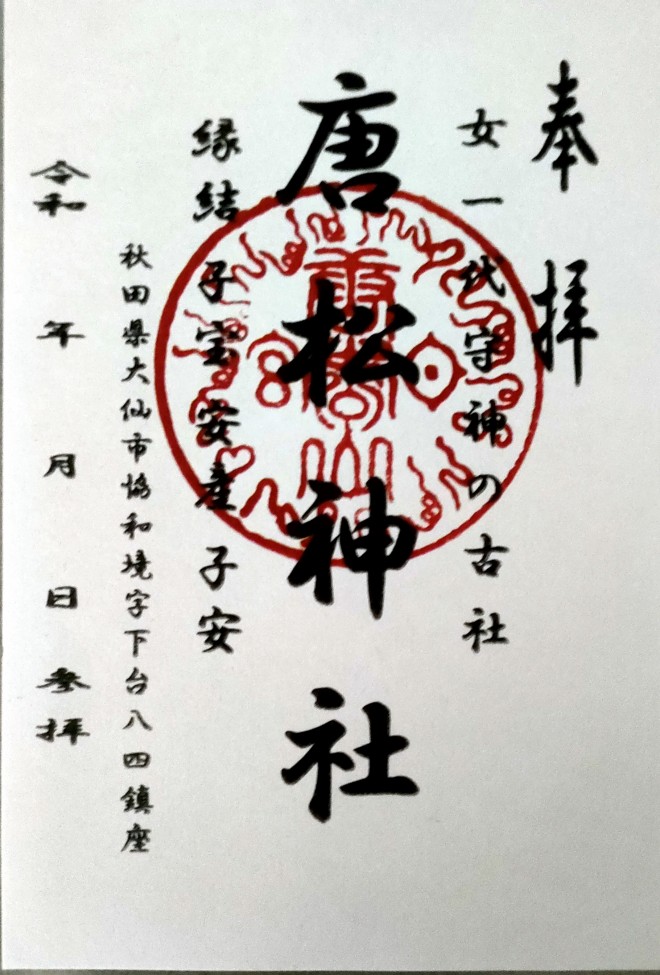 奉拝
女一代守神の古社
唐松神社
縁結子宝安産子安
秋田県大仙市協和境字下台八四鎮座
令和 年 月 日参拝